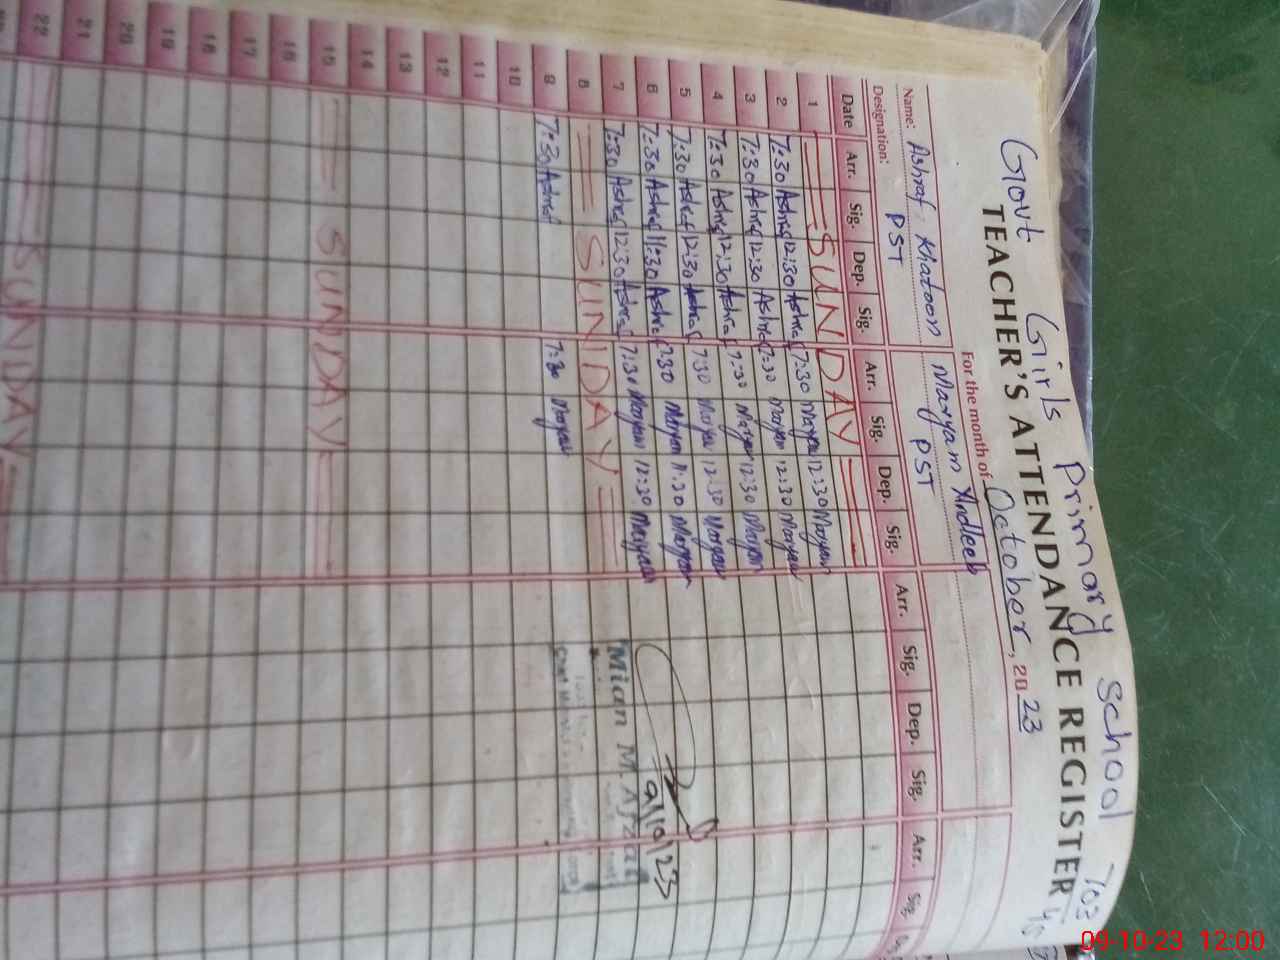 Govt Girls Primary School 703
TEACHER'S ATTENDANCE REGISTER
For the month of October, 2023
Name: Ashraf Khatoon Maryam Andleeb
Designation: PST PST
Date Arr. Sig. Dep. Sig. Arr. Sig. Dep. Sig. Arr. Sig. Dep. Sig. Arr. Sig.
1 SUNDAY
2 7:30 Ashraf 12:30 Ashraf 7:30 Maryam 12:30 Maryam
3 7:30 Ashraf 12:30 Ashraf 7:30 Maryam 12:30 Maryam
4 7:30 Ashraf 12:30 Ashraf 7:30 Maryam 12:30 Maryam
5 7:30 Ashraf 12:30 Ashraf 7:30 Maryam 12:30 Maryam
6 7:30 Ashraf 11:30 Ashraf 7:30 Maryam 11:30 Maryam
7 7:30 Ashraf 12:30 Ashraf 7:30 Maryam 12:30 Maryam
8 SUNDAY
9 7:30 Ashraf 7:30 Maryam
10
11
12
13
14
15 SUNDAY
16
17
18
19
20
21
22 SUNDAY
9/10/23
Mian M. Afzal
09-10-23 12:00